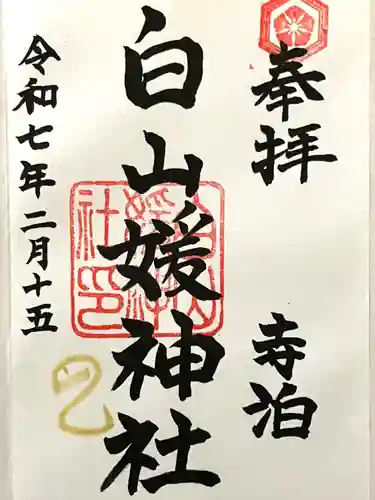 奉拝
寺泊
白山媛神社
令和七年二月十五